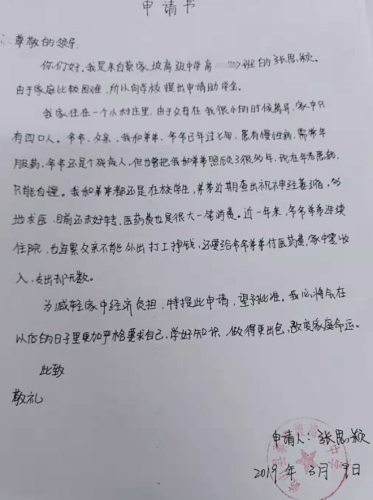 申请书
尊敬的领导:
你们好,我是来自蔡家坡高级中学高一(11)班的张思颖。
由于家庭比较困难,所以向学校提出申请助学金。
我家住在一个小村庄里,由于父母在我很小的时候离异,家中只
有四口人。爷爷、父亲、我和弟弟,爷爷已年过七旬,患有慢性病,需常年
服药,爷爷还是个残疾人,但也曾把我和弟弟照顾了很多年,现在年老患病,
只能自理。我和弟弟都还是在校学生,弟弟近期查出视神经萎缩,多
地求医,目前还未好转,医药费也是很大一笔消费。近一年来,爷爷弟弟连续
住院,也连累父亲不能外出打工挣钱,还要给爷爷弟弟付医药费,家中零收
入,支出却无数。
为减轻家中经济负担,特提此申请,望予批准。我也将会在
以后的日子里更加严格要求自己,学好知识,做得更出色,改变家庭命运。
此致
敬礼
申请人:张思颖
2019年3月9日